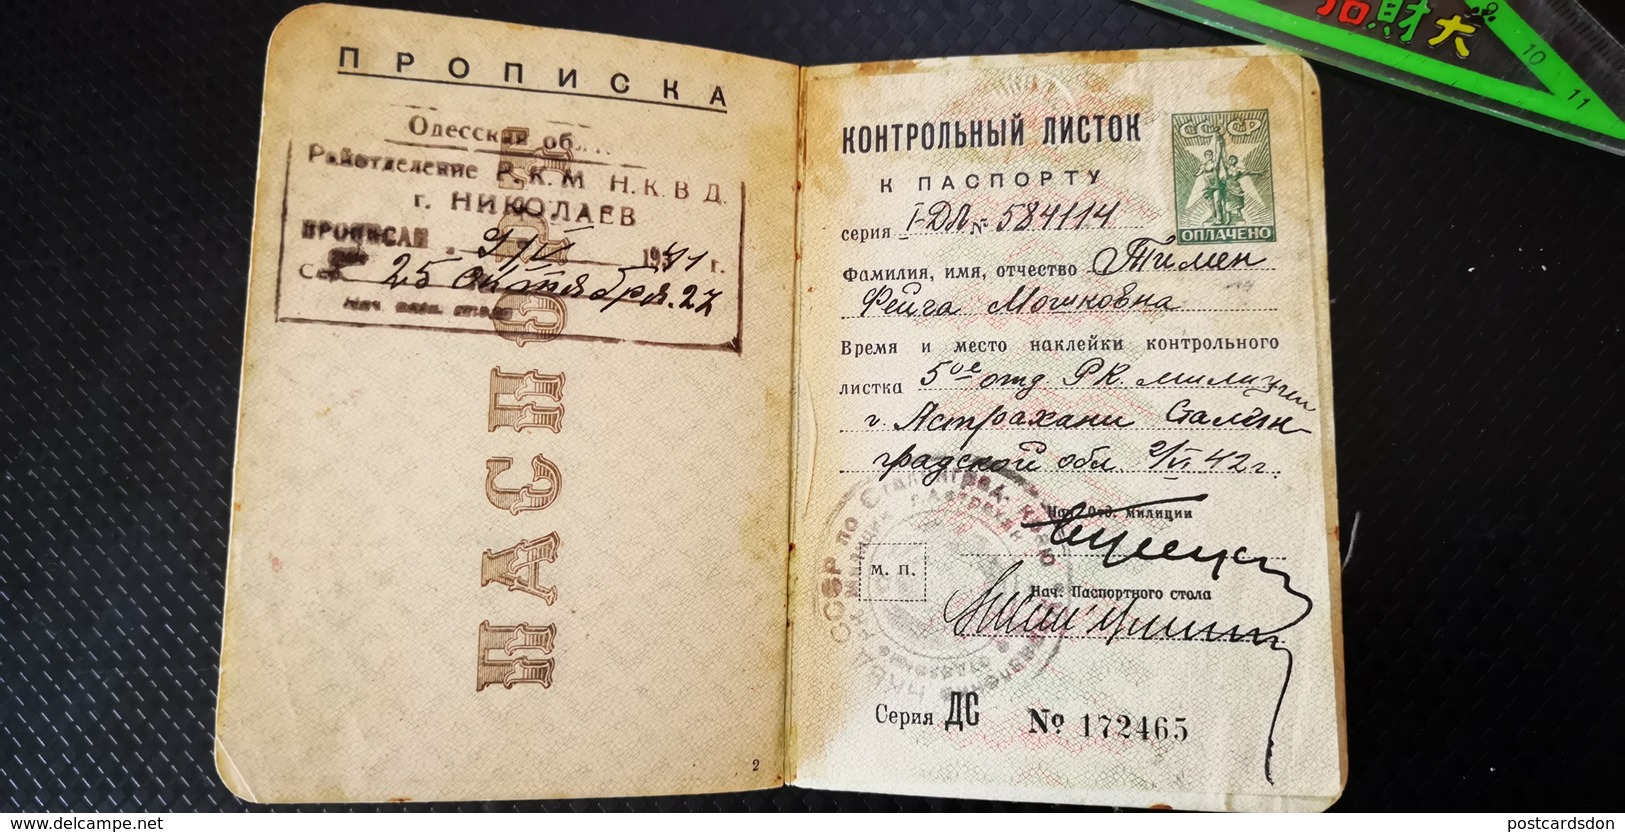 ПРОПИСКА
Одесская обл.
Райотделение Р.К.М Н.К.В.Д.
г. НИКОЛАЕВ
ПРОПИСАН 1941 г.
25 октября. 27
ПАСПОРТ
2
КОНТРОЛЬНЫЙ ЛИСТОК
К ПАСПОРТУ
СССР
ОПЛАЧЕНО
серия I-ДЛ № 584114
Фамилия, имя, отчество Тилмен
Фейга Мошковна
Время и место наклейки контрольного
листка 5ое отд. РК. милиции
г. Астрахани Сталин-
градской обл. 2/VI 42 г.
Нач. Отд. милиции
М. П.
Нач. Паспортного стола
Серия ДС № 172465
招財犬
10
11
www.delcampe.net
postcardsdon